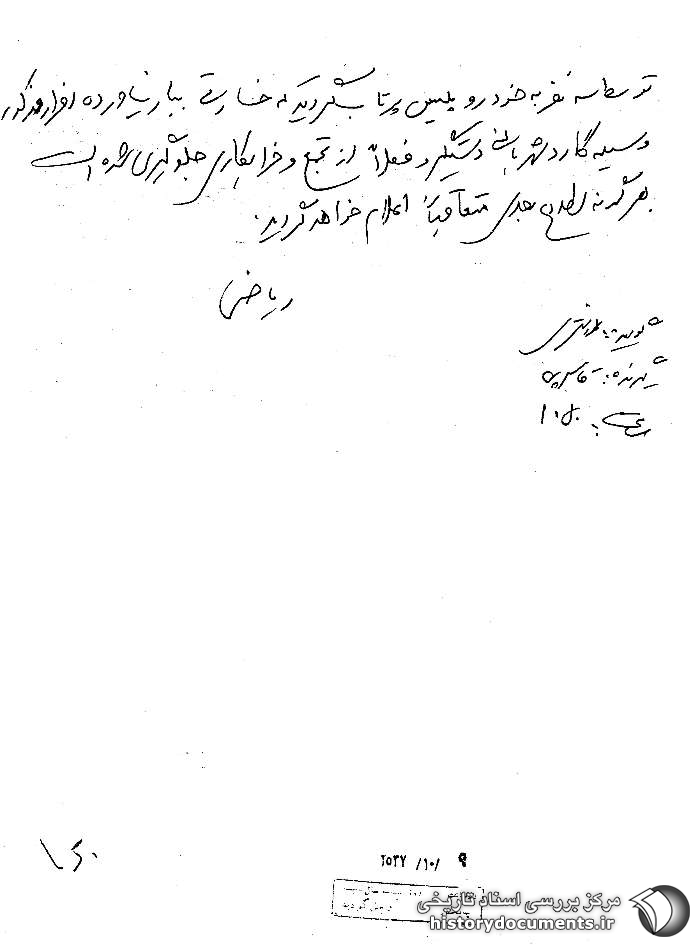 توسط سه نفر به خودرو پلیس پرتاب گردید که خسارتی ببار نیاورده افراد مذکور
وسیله گارد شهربانی دستگیر و فعلاً از تجمع و خرابکاری جلوگیری شده است
هرگونه اطلاع بعدی متعاقباً اعلام خواهد گردید.
ریاضی
گوینده:
گیرنده:
ساعت:
۲۵۳۷/۱۰/ ۹
مرکز بررسی اسناد تاریخی
historydocuments.ir